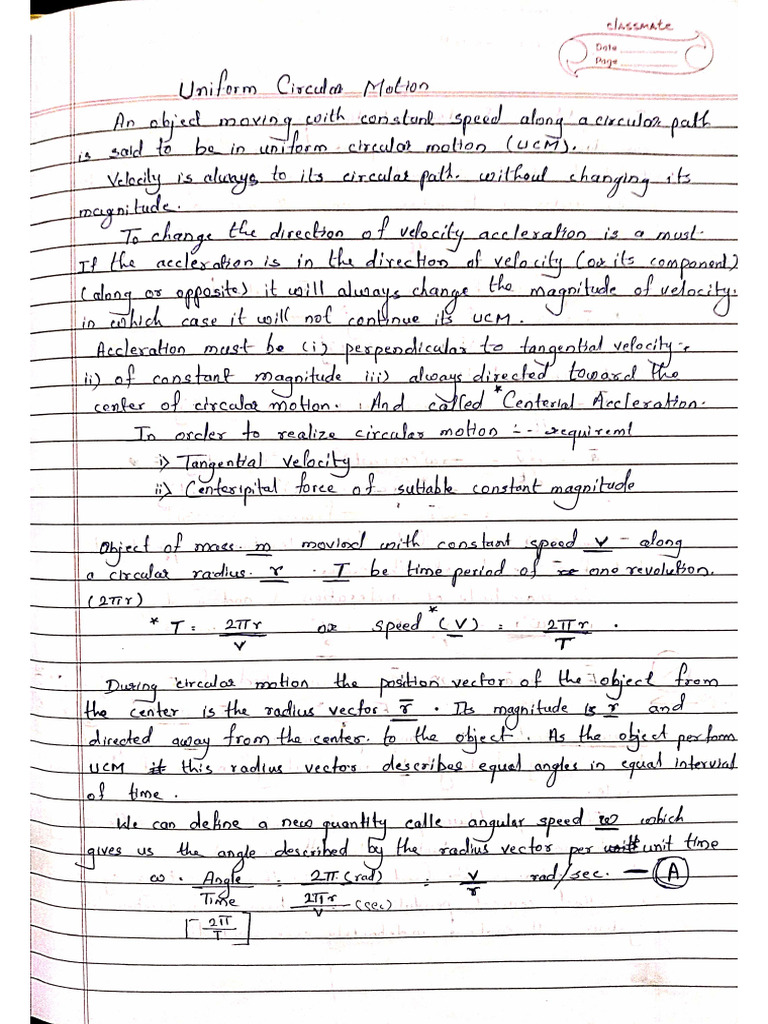 classmate
Date
Page
Uniform Circular Motion
An object moving with constant speed along a circular path
is said to be in uniform circular motion (UCM).
Velocity is always to its circular path. without changing its
magnitude.
To change the direction of velocity accleration is a must.
If the accleration is in the direction of velocity (or its component)
(along or opposite) it will always change the magnitude of velocity.
in which case it will not continue its UCM.
Accleration must be (i) perpendicular to tangential velocity.
ii) of constant magnitude iii) always directed toward the
center of circular motion. And called *Centerial Accleration.
In order to realize circular motion :- requiremt
i) Tangential velocity
ii) Centeripital force of sutiable constant magnitude
Object of mass m movind with constant speed v - along
a circular radius. r . T be time period of one revolution.
(2πr)
* T = 2πr/v or speed *(V) = 2πr/T .
During circular motion the position vector of the object from
the center is the radius vector r̄ . Its magnitude is r and
directed away from the center. to the object . As the object perform
UCM this radius vector describes equal angles in equal interval
of time .
We can define a new quantity calle angular speed w which
gives us the angle described by the radius vector per unit time
ω . Angle/Time = 2π(rad) / 2πr/v (sec) = v/r rad/sec. — (A)
[2π/T]